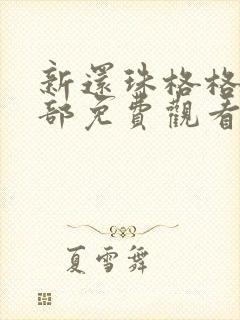 新還珠格格
部免費觀看
夏雪舞